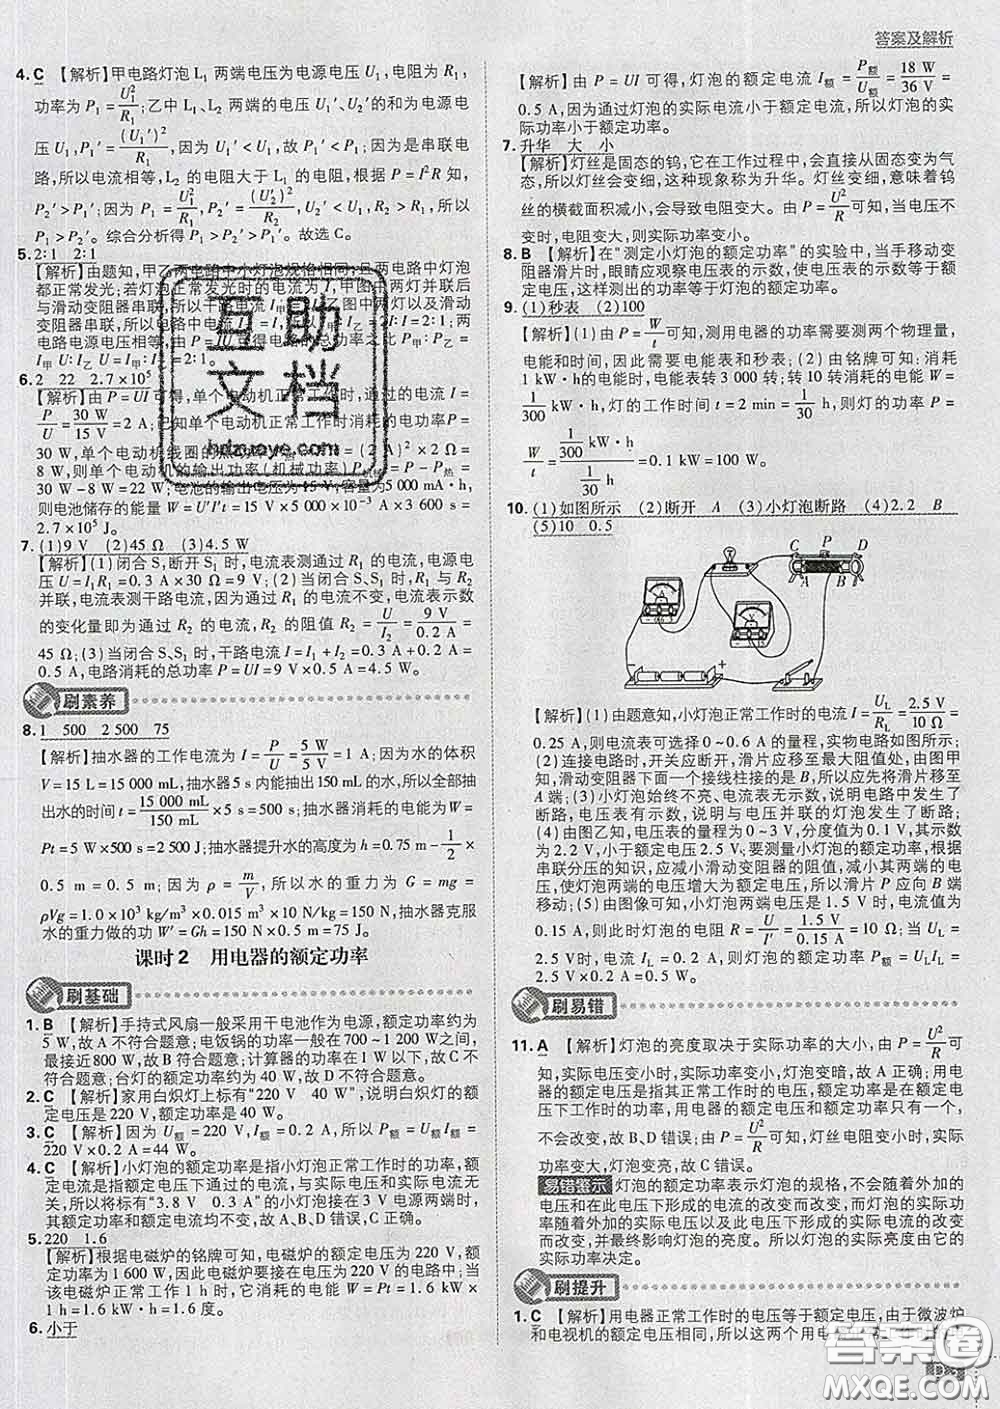 答案及解析
4. C 【解析】甲电路灯泡 L₁ 两端电压为电源电压 U₁,电阻为 R₁,
功率为 P₁ = U₁²/R₁;乙中 L₁、L₂ 两端的电压 U₁′、U₂′ 的和为电源电
压 U₁,P₁′ = (U₁′)²/R₁,因为 U₁′ < U₁,故 P₁′ < P₁;因为是串联电
路,所以电流相等,L₂ 的电阻大于 L₁ 的电阻,根据 P = I²R 知,
P₂′ > P₁′;因为
P₁ > P₂′。综合分析得 P₂′ > P₁′。故选 C。
5. 2∶1 2∶1
【解析】由题知,甲乙两电路中小灯泡规格相同,且两电路中灯泡
都正常发光;若灯泡正常发光时的电流为 I,
6. 2 22 2.7×10⁵
【解析】由 P = UI 可得,单个电动机正常工作时,通过的电流 I =
P/U = 30 W/15 V = 2 A;已知单个电动机正常工作时消耗的电功率 P =
30 W,单个电动机线圈的热功率
8 W,则单个电动机的输出功率(机械功率) P机 = P - P热 =
30 W - 8 W = 22 W;电池的输出电压为 15 V,容量为 5 000 mA·h,
则电池储存的能量 W = U′I′t = 15 V × 5 000 × 10⁻³ A × 3 600 s =
2.7×10⁵ J。
7. (1)9 V (2)45 Ω (3)4.5 W
【解析】(1)闭合 S,断开 S₁ 时,电流表测通过 R₁ 的电流,电源电
压 U = I₁R₁ = 0.3 A × 30 Ω = 9 V;(2)当闭合 S、S₁ 时,R₁ 与 R₂
并联,电流表测干路电流,因为通过 R₁ 的电流不变,电流表示数
的变化量即为通过 R₂ 的电流,R₂ 的阻值 R₂ = U/I₂ = 9 V/0.2 A =
45 Ω;(3)当闭合 S、S₁ 时,干路电流 I = I₁ + I₂ = 0.3 A + 0.2 A =
0.5 A,电路消耗的总功率 P = UI = 9 V × 0.5 A = 4.5 W。
刷素养
8. 1 500 2 500 75
【解析】抽水器的工作电流为 I = P/U = 5 W/5 V = 1 A;因为水的体积
V = 15 L = 15 000 mL,抽水器 5 s 内能抽出 150 mL 的水,所以全部抽
出水的时间 t = 15 000 mL/150 mL × 5 s = 500 s;抽水器消耗的电能为 W =
Pt = 5 W × 500 s = 2 500 J;抽水器提升水的高度为 h = 0.75 m - 1/2 ×
0.5 m = 0.5 m;因为 ρ = m/V,所以水的重力为 G = mg =
ρVg = 1.0×10³ kg/m³ × 0.015 m³ × 10 N/kg = 150 N,抽水器克服
水的重力做的功 W′ = Gh = 150 N × 0.5 m = 75 J。
课时2 用电器的额定功率
刷基础
1. B 【解析】手持式风扇一般采用干电池作为电源,额定功率约为
5 W,故 A 不符合题意;电饭锅的功率一般在 700~1 200 W之间,
最接近 800 W,故 B 符合题意;计算器的功率在 1 W 以下,故 C 不
符合题意;台灯的额定功率约为 40 W,故 D 不符合题意。
2. C 【解析】家用白炽灯上标有“220 V 40 W”,说明白炽灯的额
定电压是 220 V,额定功率为 40 W。
3. C 【解析】因为 U额 = 220 V,I额 = 0.2 A,所以 P额 = U额I额 =
220 V × 0.2 A = 44 W。
4. C 【解析】小灯泡的额定功率是指小灯泡正常工作时的功率,额
定电流是指在额定电压下通过的电流,与实际电压和实际电流无
关,所以将标有“3.8 V 0.3 A”的小灯泡接在 3 V 电源两端时,
其额定功率和额定电流均不变,故 A、B、D 错误,C 正确。
5. 220 1.6
【解析】根据电磁炉的铭牌可知,电磁炉的额定电压为 220 V,额
定功率为 1 600 W,因此电磁炉要接在电压为 220 V 的电路中;当
该电磁炉正常工作 1 h 时,消耗的电能 W = Pt = 1.6 kW ×
1 h = 1.6 kW·h,即 1.6 度。
6. 小于
【解析】由 P = UI 可得,灯泡的额定电流 I额 = P额/U额 = 18 W/36 V =
0.5 A,因为通过灯泡的实际电流小于额定电流,所以灯泡的实
际功率小于额定功率。
7. 升华 大 小
【解析】灯丝是固态的钨,它在工作过程中,会直接从固态变为气
态,所以灯丝会变细,这种现象称为升华。灯丝变细,意味着钨
丝的横截面积减小,会导致电阻变大。由 P = U²/R 可知,当电压不
变时,电阻变大,则实际功率变小。
8. B 【解析】在“测定小灯泡的额定功率”的实验中,当手移动变
阻器滑片时,眼睛应观察电压表的示数,使电压表的示数等于额
定电压,这样测出的功率等于灯泡的额定功率。
9. (1)秒表 (2)100
【解析】(1)由 P = W/t 可知,测用电器的功率需要测两个物理量,
电能和时间,因此需要电能表和秒表;(2)由铭牌可知:消耗
1 kW·h 的电能时,电能表转 3 000 转;转 10 转消耗的电能 W =
1/300 kW·h,灯的工作时间 t = 2 min = 1/30 h,则灯的功率 P =
W/t = (1/300 kW·h)/(1/30 h) = 0.1 kW = 100 W。
10. (1)如图所示 (2)断开 A (3)小灯泡断路 (4)2.2 B
(5)10 0.5
C P D
A B
A
V
【解析】(1)由题意知,小灯泡正常工作时的电流 I = U_L/R_L = 2.5 V/10 Ω =
0.25 A,则电流表可选择 0~0.6 A 的量程,实物电路如图所示;
(2)连接电路时,开关应断开,滑片应移至最大阻值处,由图甲可
知,滑动变阻器下面一个接线柱接的是 B,所以应先将滑片移至
A 端;(3)小灯泡始终不亮、电流表无示数,说明电路中发生了断
路,电压表有示数,说明与电压表并联的小灯泡发生了断路;
(4)由图乙知,电压表的量程为 0~3 V,分度值为 0.1 V,其示数
为 2.2 V,小于额定电压 2.5 V;要测量小灯泡的额定功率,根据
串联分压的知识,应减小滑动变阻器的阻值,减小其两端的电
压,使灯泡两端的电压增大为额定电压,所以滑片 P 应向 B 端
移动;(5)由图丙知,当小灯泡两端的电压为 1.5 V时,电流值为
0.15 A,则此时灯泡的电阻 R = U/I′ = 1.5 V/0.15 A = 10 Ω;当 U_L =
2.5 V时,电流 I_L = 0.2 A,灯泡的额定功率 P额 = U_L I_L =
2.5 V × 0.2 A = 0.5 W。
刷易错
11. A 【解析】灯泡的亮度取决于实际功率的大小,由 P = U²/R 可
知,实际电压变小时,实际功率变小,灯泡变暗,故 A 正确;用电
器的额定电压是指其正常工作时的电压,额定功率是在额定电
压下工作时的功率,用电器的额定电压和额定功率只有一个,不
会改变,故 B、D 错误;由 P = U²/R 可知,灯丝电阻变小时,实际
功率变大,灯泡变亮,故 C 错误。
易错警示 灯泡的额定功率表示灯泡的规格,不会随着外加的
电压和在此电压下形成的电流的改变而改变。但是实际功率
会随着外加的实际电压以及此电压下形成的实际电流的改变
而改变,并最终影响灯泡的亮度。所以灯泡的亮度是由灯泡的
实际功率决定。
刷提升
1. C 【解析】用电器正常工作时的电压等于额定电压,由于微波炉
和电视机的额定电压相同,所以这两个用电
互助文档
hdzuoye.com
答案圈
MXQE.COM